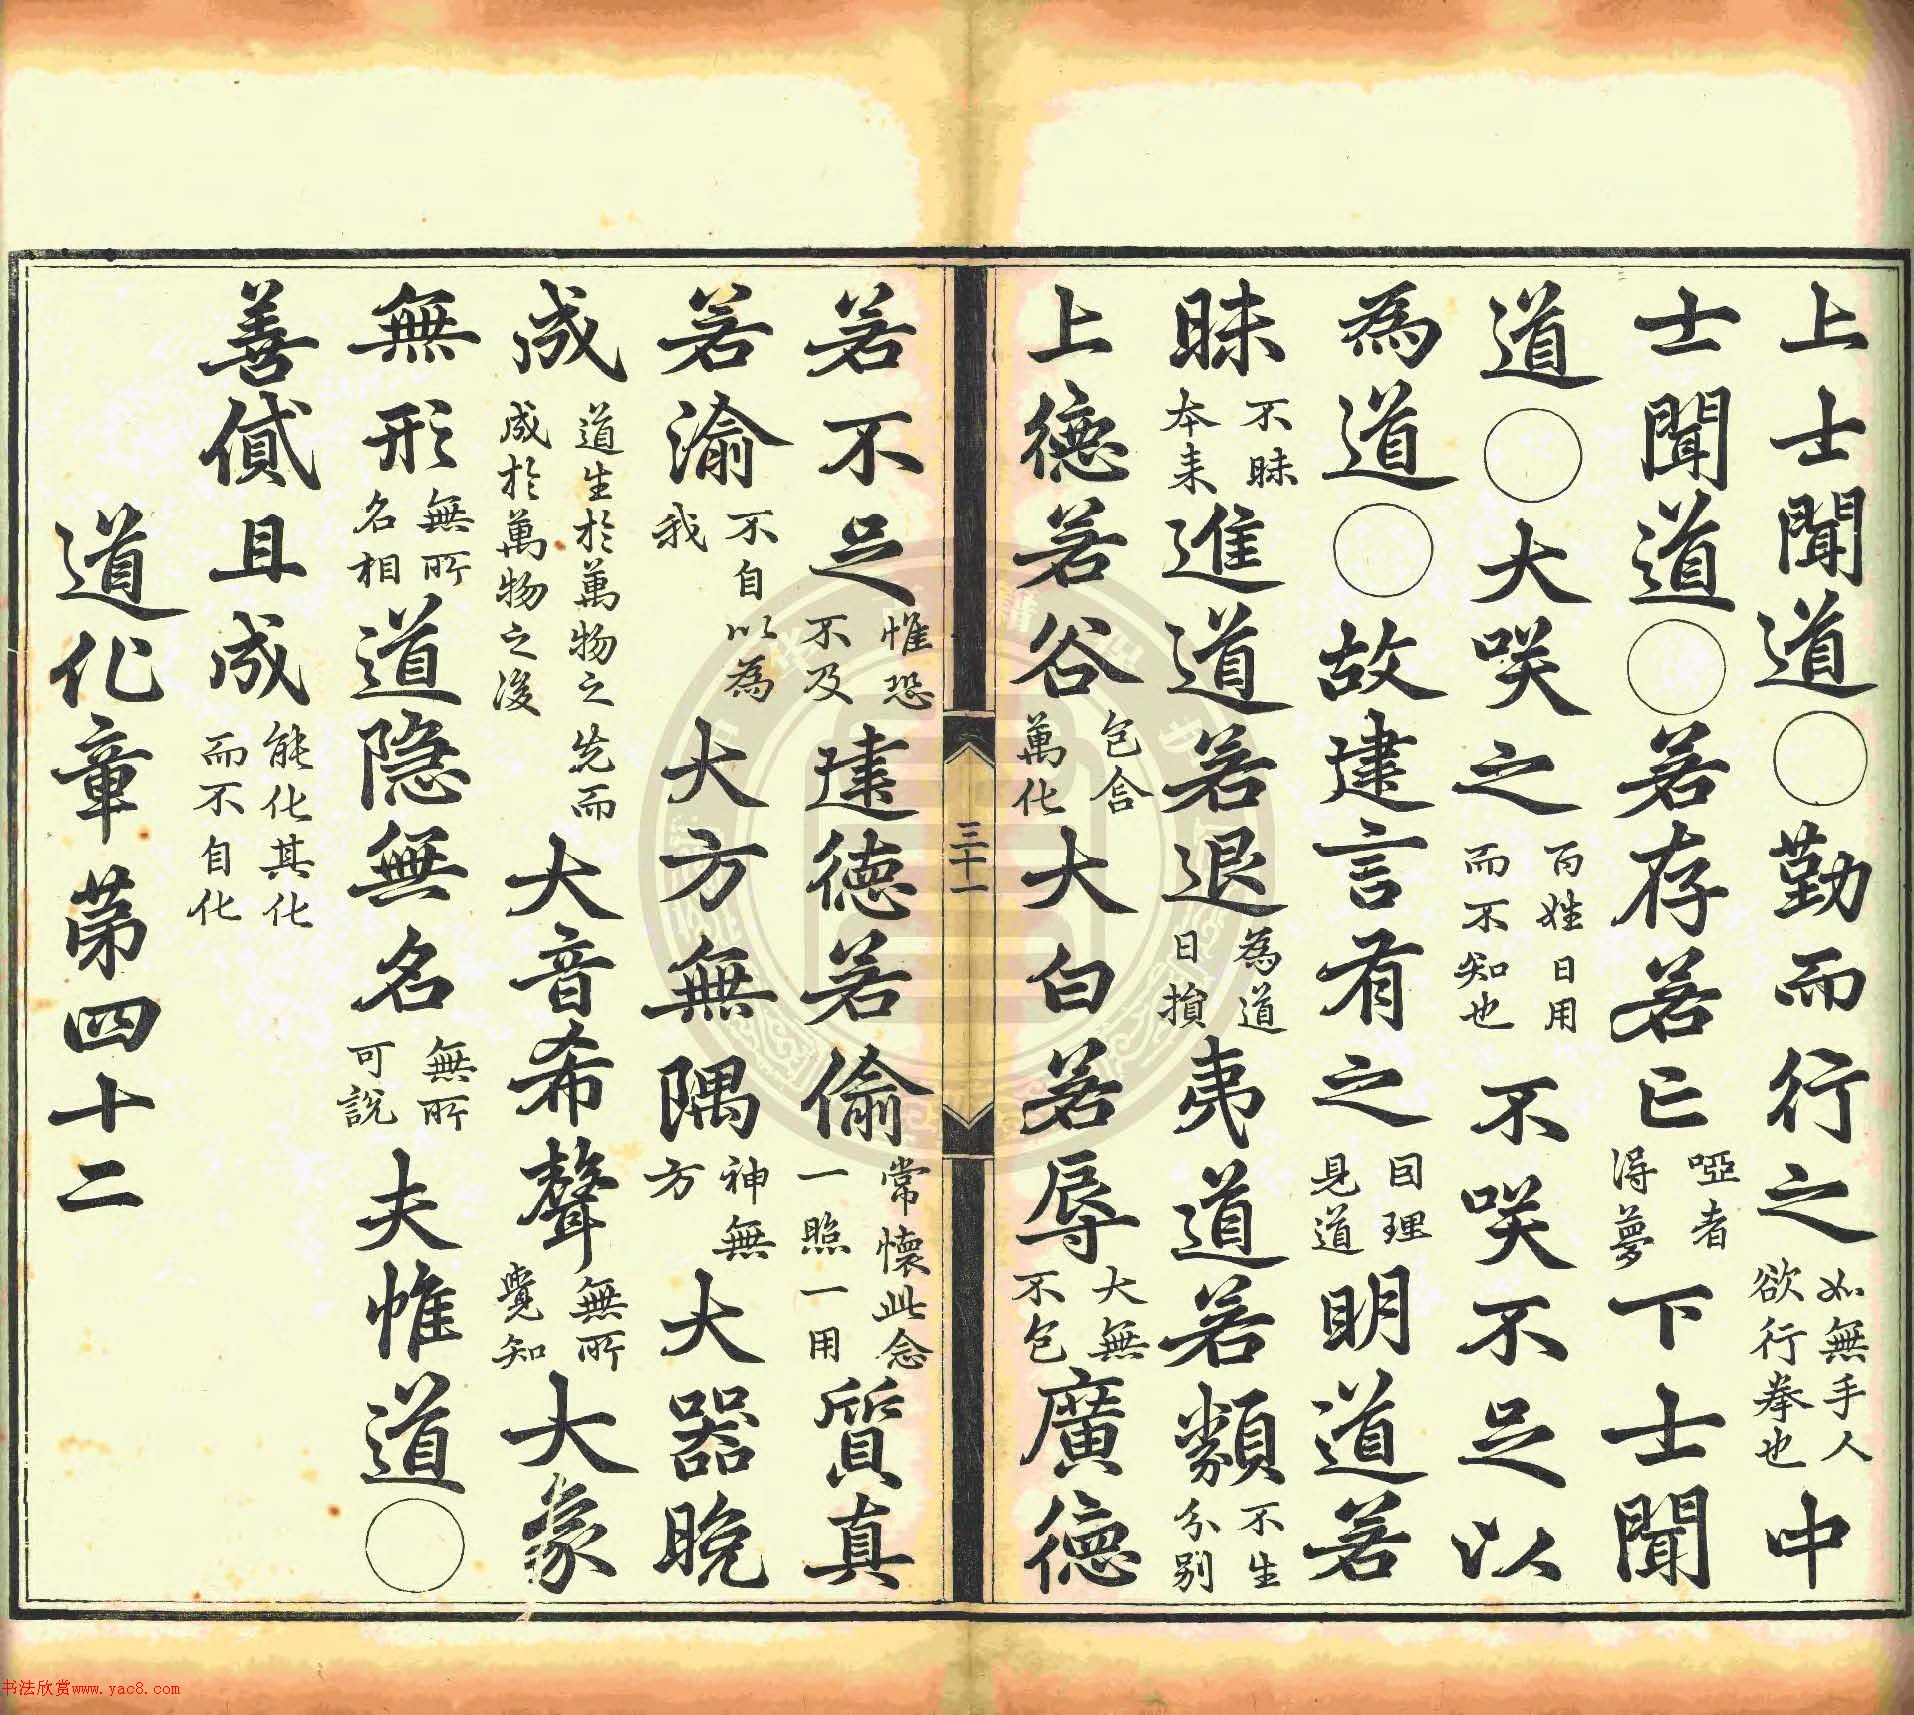 上士聞道○勤而行之如無手人欲行拳也中
士聞道○若存若亡啞者得夢下士聞
道○大咲之百姓日用而不知也不咲不足以
為道○故建言有之因理見道明道若
昧不昧本来進道若退為道日損夷道若類不生分別
上德若谷包含萬化大白若辱大無不包廣德
三十一
若不足惟恐不及建德若偷常懷此念一照一用質真
若渝不自以為我大方無隅神無方大器晚
成道生於萬物之先而成於萬物之後大音希聲無所覺知大象
無形無所名相道隱無名無所可說夫惟道○
善貸且成能化其化而不自化
道化章第四十二
书法欣赏www.yac8.com